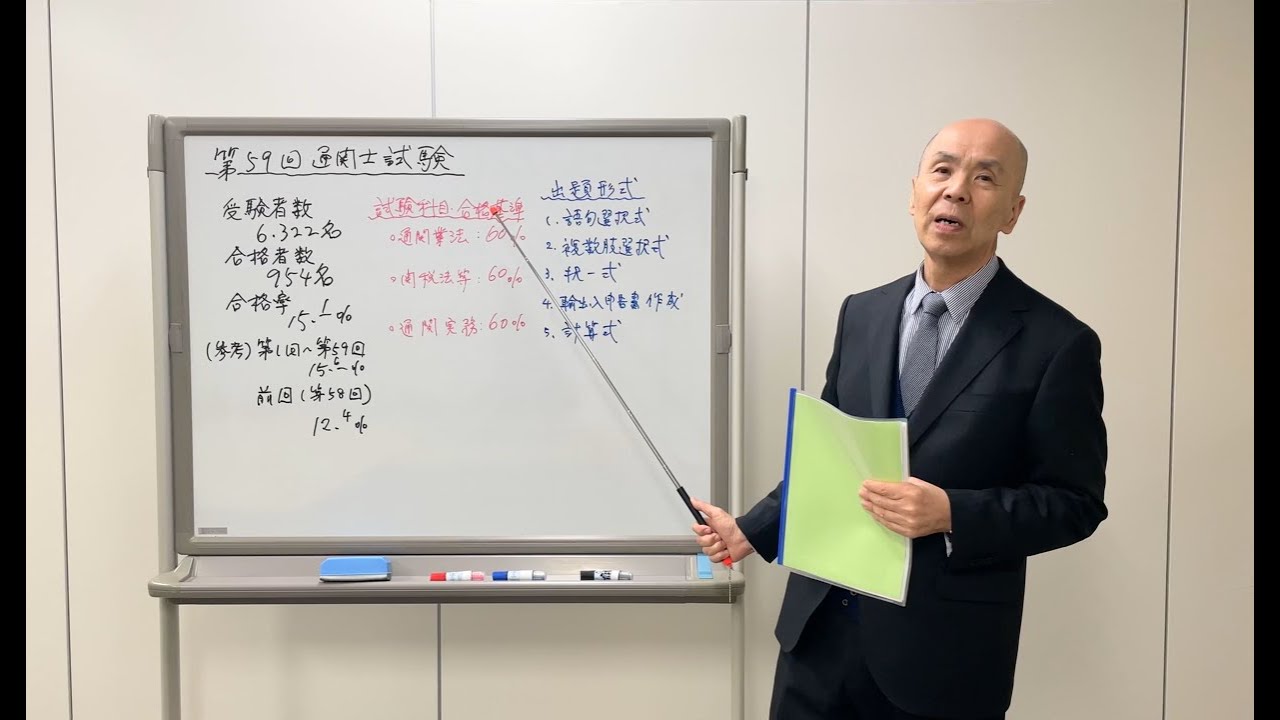 第59回通関士試験
受験者数
6.322名
合格者数
954名
合格率
15.1%
(参考)第1回~第59回
15.6%
前回(第58回)
12.4%
試験科目:合格基準
○通関業法:60%
○関税法等:60%
○通関実務:60%
出題形式
1.語句選択式
2.複数肢選択式
3.択一式
4.輸出入申告書作成
5.計算式